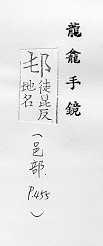 龍龕手鏡
邨徒昆反
地名
(邑部 P.455)